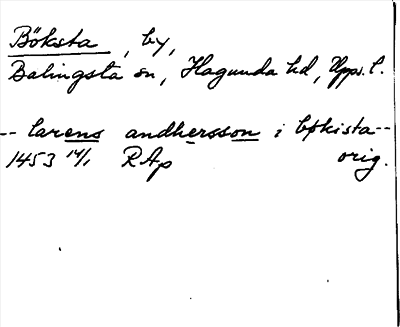 Böksta, by,
Balingsta sn, Hagunda hd, Upps. l.
-- larens andhersson i bökista--
1453 14/1 RAp orig.